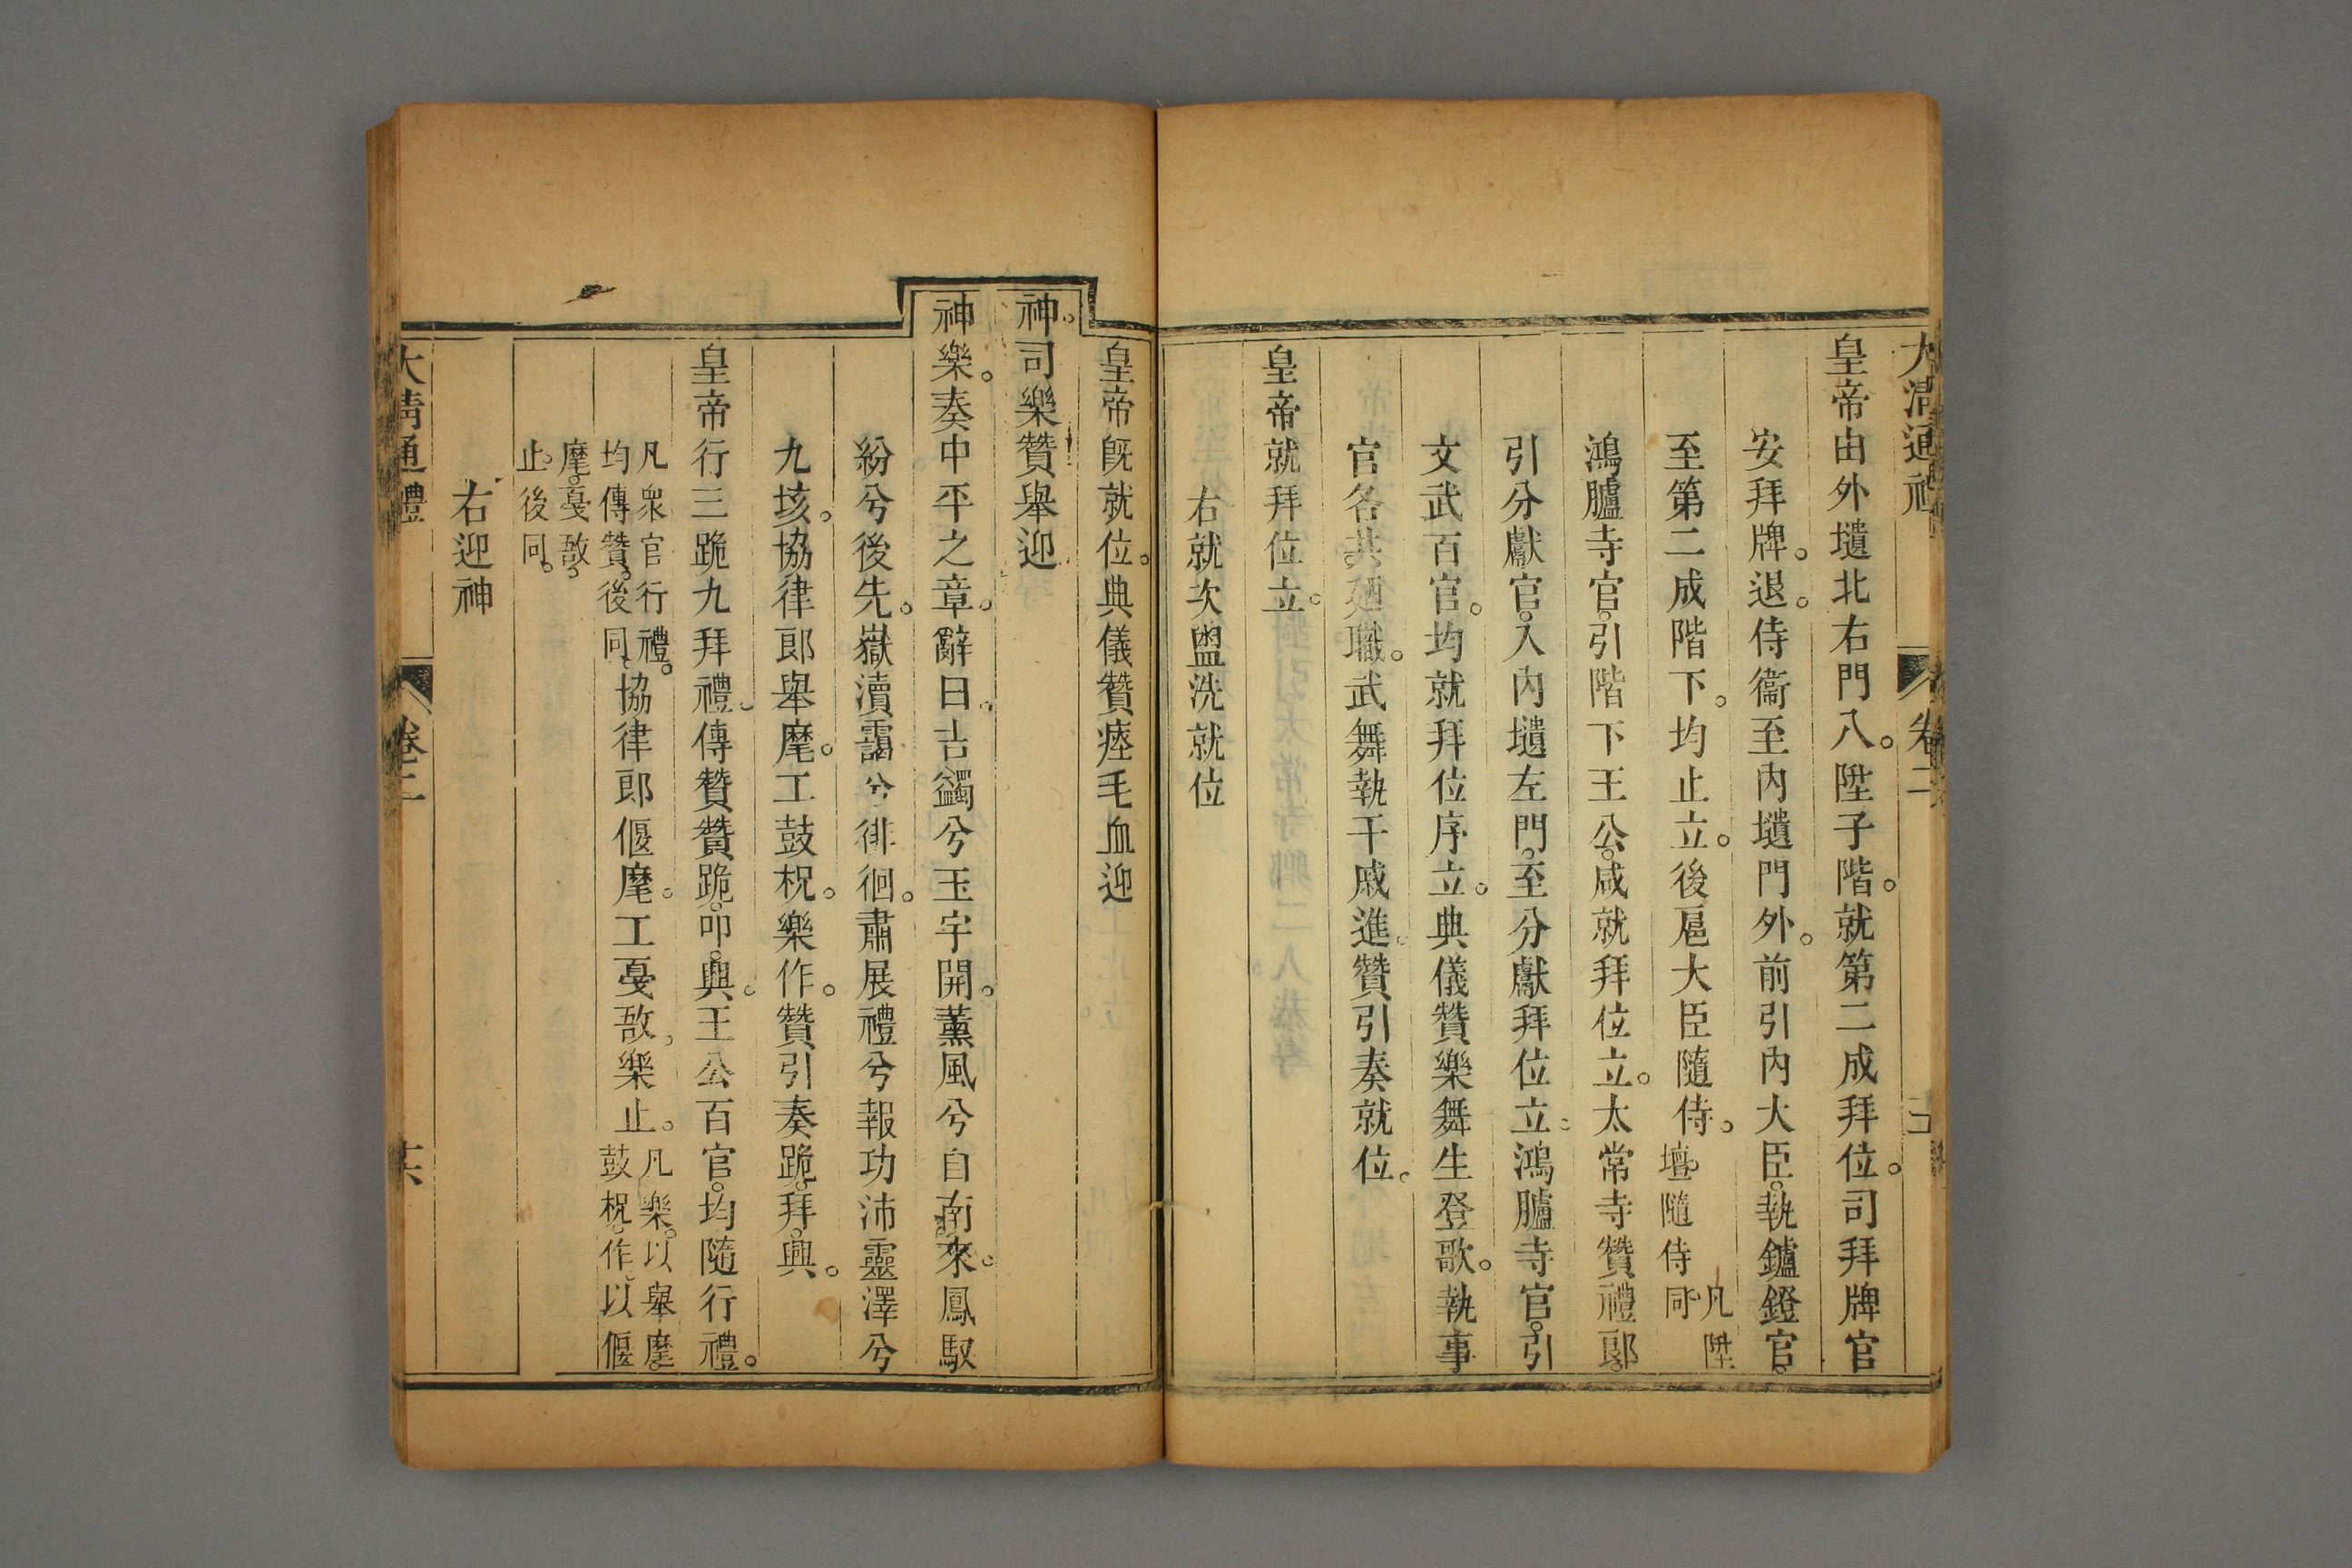 大清通禮 卷二
皇帝由外壝北右門入。陞子階。就第二成拜位。司拜牌官
安拜牌。退。侍衞至內壝門外。前引內大臣。執鑪鐙官。
至第二成階下。均止立。後扈大臣隨侍。凡陞壇。隨侍同。
鴻臚寺官。引階下王公。咸就拜位立。太常寺贊禮郞。
引分獻官。入內壝左門。至分獻拜位立。鴻臚寺官。引
文武百官。均就拜位序立。典儀贊樂舞生登歌。執事
官各共廼職。武舞執干戚進。贊引奏就位。
皇帝就拜位立。
右就次盥洗就位
皇帝旣就位。典儀贊瘞毛血迎
神。司樂贊舉迎
神樂。奏中平之章。辭曰。吉蠲兮玉宇開。薰風兮自南來。鳳馭
紛兮後先。嶽瀆靄兮徘徊。肅展禮兮報功沛靈澤兮
九垓。協律郞舉麾。工鼓柷。樂作。贊引奏跪。拜。興。
皇帝行三跪九拜禮。傳贊贊跪。叩。興。王公百官。均隨行禮。
凡衆官行禮。均傳贊。後同。協律郞偃麾。工戞敔。樂止。凡樂。以舉麾。鼓柷。作。以偃
麾。戞敔。止。後同。
右迎神
大清通禮 卷二